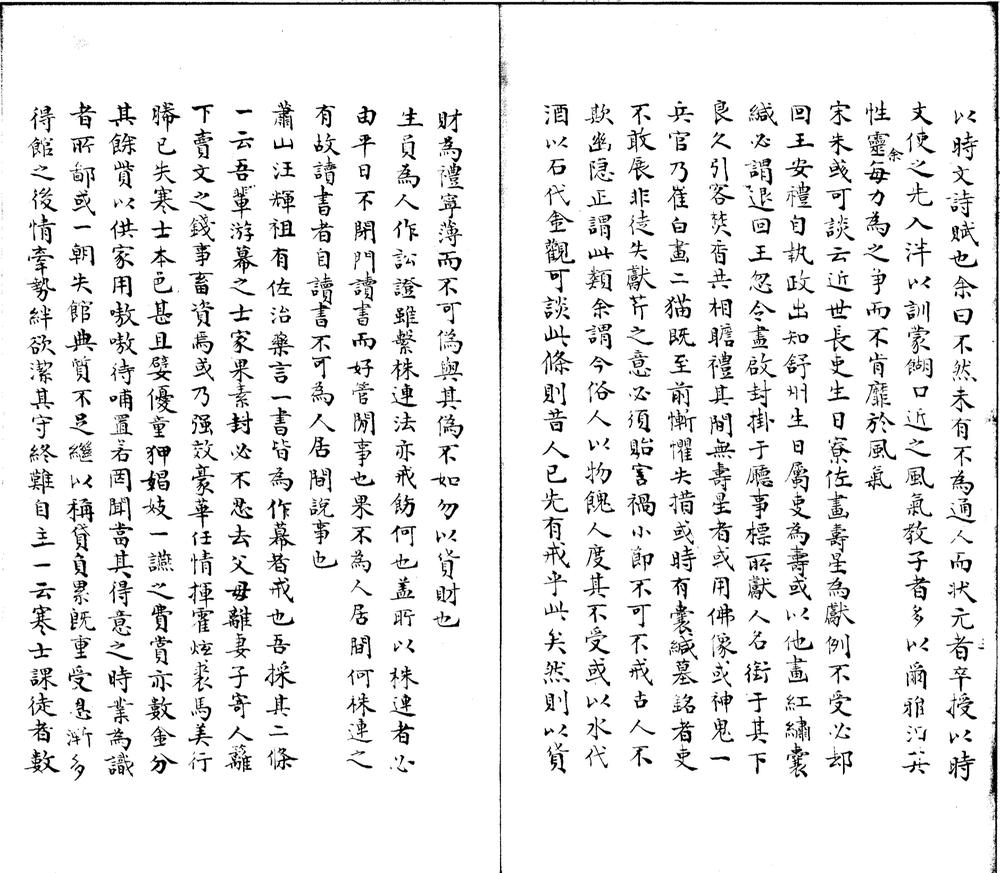 以時文詩賦也余曰不然未有不為通人而狀元者卒授以時
文使之先入泮以訓蒙餬口近之風氣教子者多以爾雅汩其
性靈余每力為之爭而不肯靡於風氣
宋朱或可談云近世長吏生日寮佐畫壽星為獻例不受必却
回王安禮自執政出知舒州生日屬吏為壽或以他畫紅繡囊
緘必謂退回王忽令盡啟封掛于廳事標所獻人名銜于其下
良久引客焚香共相瞻禮其間無壽星者或用佛像或神鬼一
兵官乃崔白畫二猫既至前慚懼失措或時有囊緘墓銘者吏
不敢展非徒失獻芹之意必須貽害禍小節不可不戒古人不
欺幽隐正謂此類余謂今俗人以物餽人度其不受或以水代
酒以石代金觀可談此條則昔人已先有戒乎此矣然則以貨
財為禮寧薄而不可偽與其偽不如勿以貨財也
生員為人作訟證雖繫株連法亦戒飭何也盖所以株連者必
由平日不閉門讀書而好管閒事也果不為人居間何株連之
有故讀書者自讀書不可為人居間說事也
蕭山汪輝祖有佐治藥言一書皆為作幕者戒也吾採其二條
一云吾輩游幕之士家果素封必不忍去父母離妻子寄人籬
下賣文之錢事畜資焉或乃强效豪華任情揮霍炫裘馬美行
縢已失寒士本色甚且嬖優童狎娼妓一讌之費賞亦數金分
其餘貲以供家用嗷嗷待哺置若罔聞當其得意之時業為識
者所鄙或一朝失館典質不足繼以稱貸負累既重受息漸多
得館之後情牽勢絆欲潔其守終難自主一云寒士課徒者數